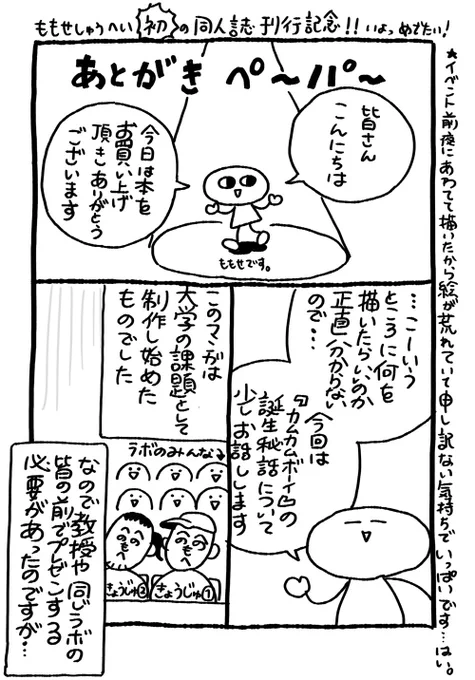 ももせしゅうへい初の同人誌刊行記念!!いよっめでたい!
★イベント前夜にあわてて描いたから絵が荒れていて申し訳ない気持ちでいっぱいです…はい。
あとがきペ〜パ〜
皆さん
こんにちは
今日は本を
お買い上げ
頂きありがとう
ございます
ももせです。
…こーいう
ところに何を
描いたらいいのか
正直分からない
ので…
今回は
『カムカムボーイ』の
誕生秘話について
少しお話しします
このマンガは
大学の課題として
制作し始めた
ものでした
ラボのみんな
へのへのもへ
へのへのもへ
きょうじゅ②
きょうじゅ①
なので教授や同じラボの
皆の前でプレゼンする
必要があったのですが…